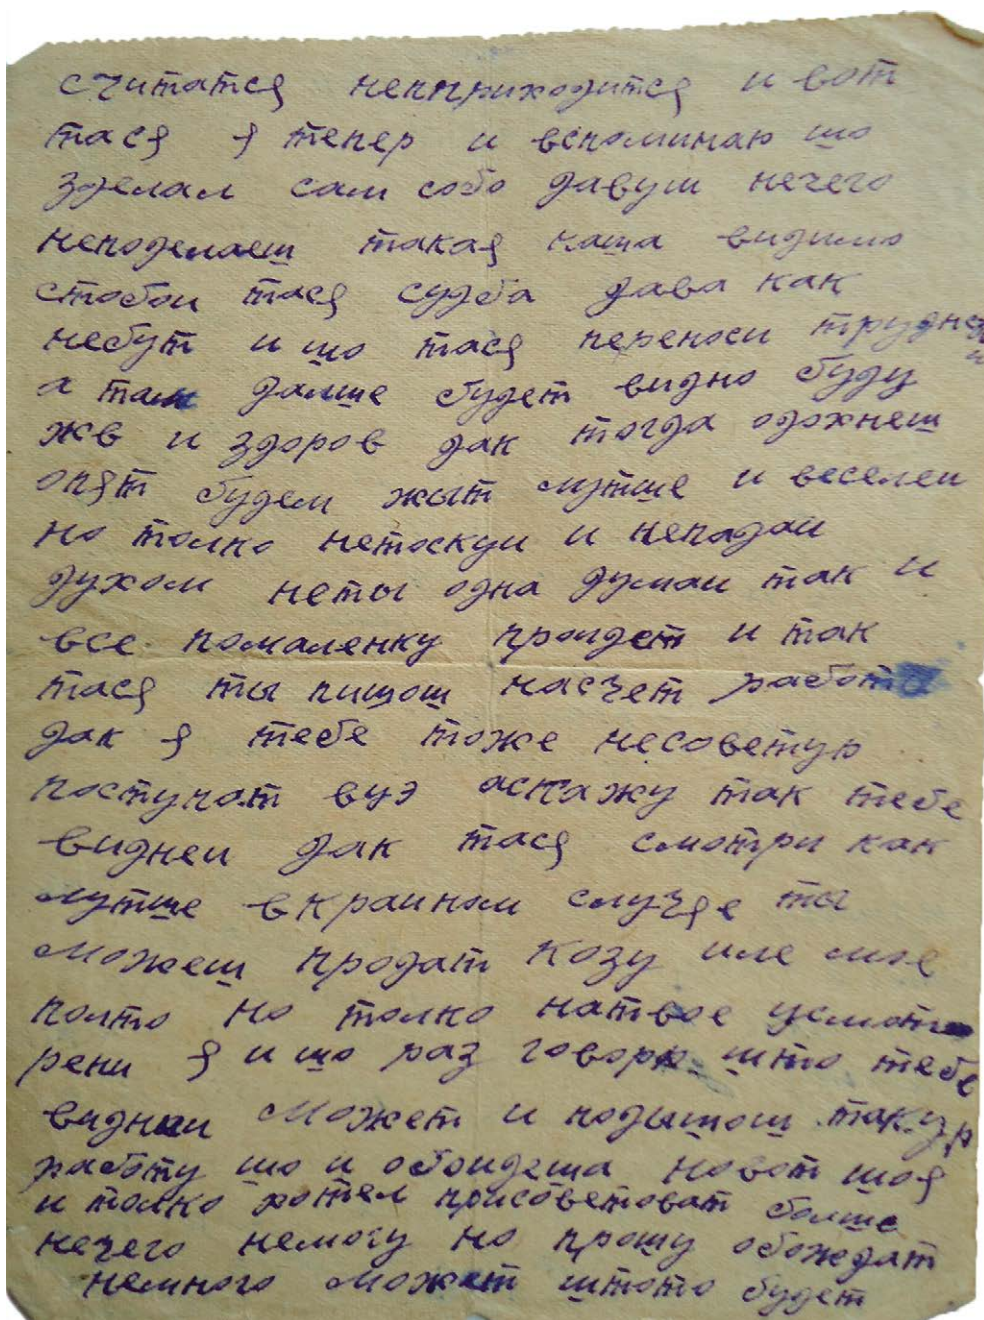 считатся неприходится и вот
тася я тепер и вспоминаю шо
зделал сам собо давуш нечего
неподелаеш такая наша видимо
стобои тася судба дава как
небут и шо тася переноси трудности
а там далше будет видно буду
жв и здоров дак тогда одохнеш
опят будем жыт лутше и веселеи
но толко нетоскуи и непадаи
духом неты одна думаи так и
все помаленку проидет и так
тася ты пишош насчет работы
дак я тебе тоже несоветую
поступат вуэ аскажу так тебе
виднеи дак тася смотри как
лутше вкраином случяе ты
можеш продат козу иле мое
полто но толко натвое усмот
рени я и шо раз говорю што тебе
виднеи может и подышош такую
работу шо и обоидеша новот шоя
и толко хотел присоветоват болше
нечего немогу но прошу обождат
немного может штото будет